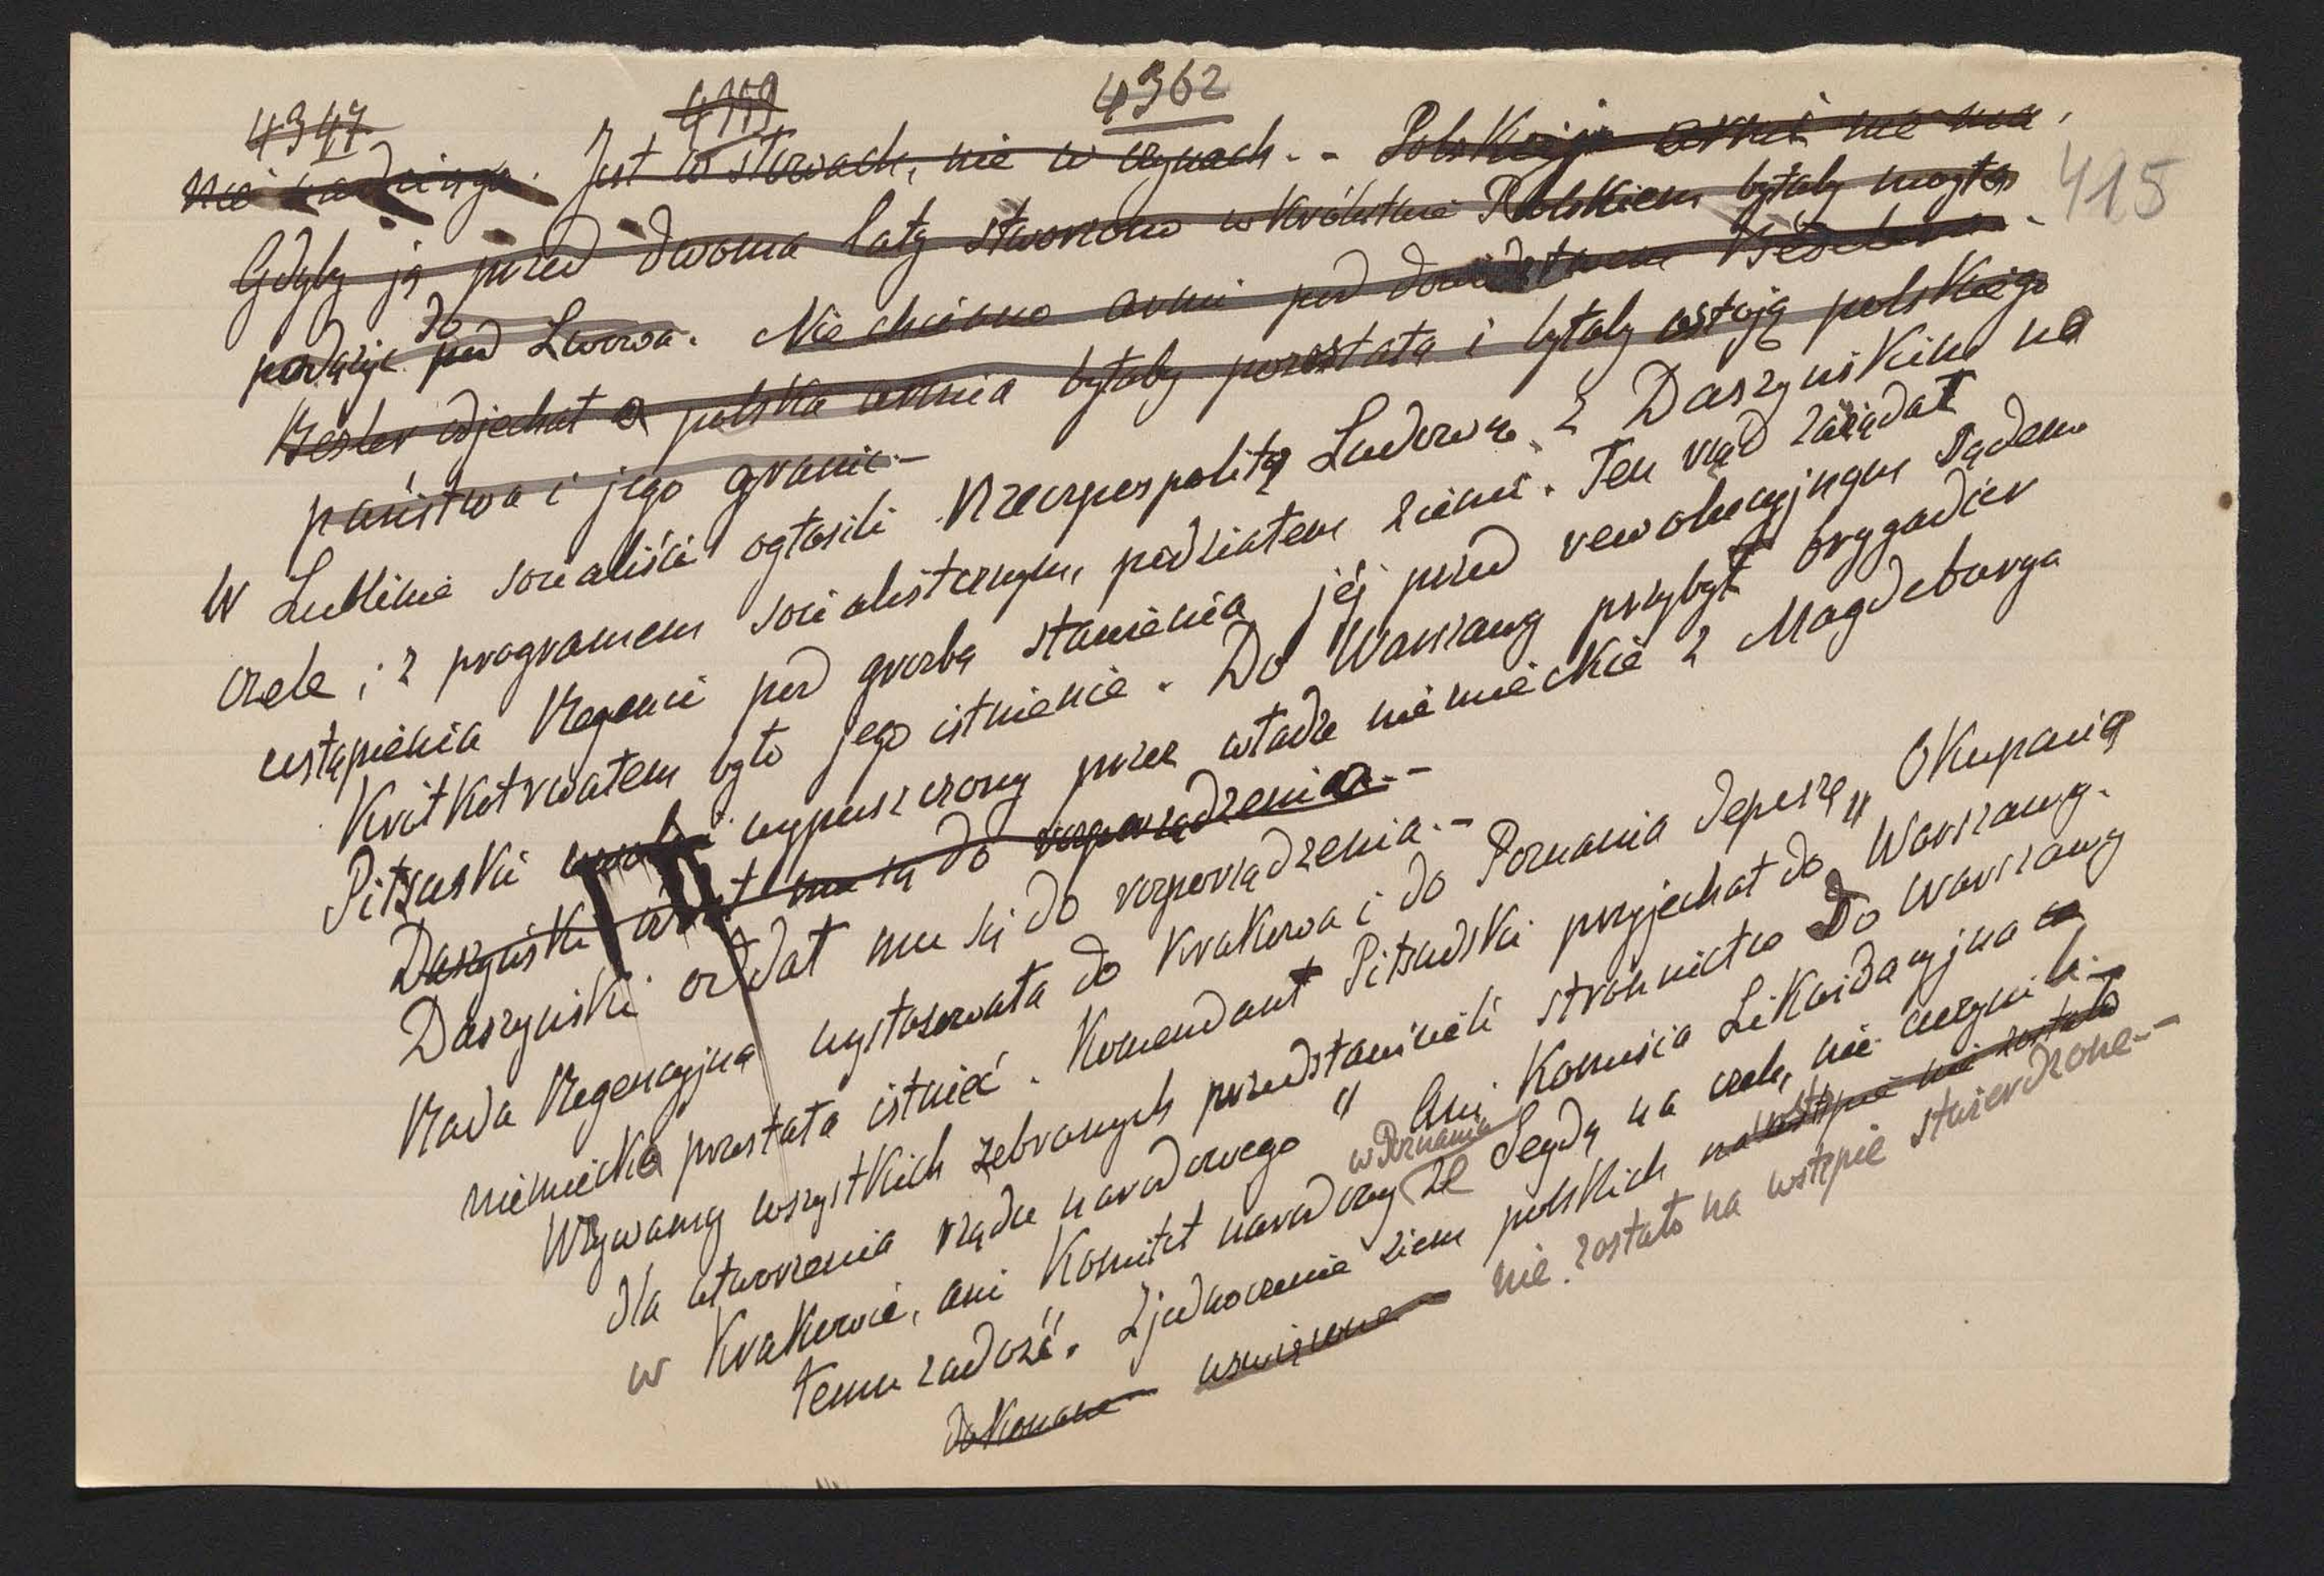 4347 4359 4362
415
Jest w słowach, nie w czynach. - Polskiej armii nie ma.
Gdyby ją przed dwoma laty stworzono w Królestwie Polskiem byłaby mogła
podążyć pod do Lwowa. Nie chciano armii pod dowództwem Beselera.
Beseler odjechał a polska armia byłaby pozostała i byłaby ostoją polskiego
państwa i jego granic.-
W Lublinie socialiści ogłosili Rzeczpospolitą Ludową z Daszyńskim na
czele i z programem socialistcznym, podziałem ziemi. Ten rząd zażądał
ustąpienia Regencii pod grozbą stawienia jéj przed rewolucyjnym sądem
Krótkotrwałem było jego istnienie. Do Warszawy przybył brygadier
Piłsuski wypuszczony przez władze niémieckie z Magdeburga
Daszyński oddał mu się do rozporządzenia.-
Daszyński oddał mu się do rozporządzenia.-
Rada Regencyjna wystosowała do Krakowa i do Poznania depeszę „Okupacia
niémiecka przestała istnieć. Komendant Piłsudski przyjechał do Warszawy.
Wzywamy wszystkich zebranych przedstawicieli stronnictw do Warszawy
dla utworzenia rządu narodowego" Ani Komisia Likwidacyjna
w Krakowie, ani Komitet narodowy w Poznaniu ze Seydą na czele, nie uczynili
temu zadość. Zjednoczenie ziem polskich na wstępie nie zostało
dokonane uswięcone nie zostało na wstępie stwierdzone.-